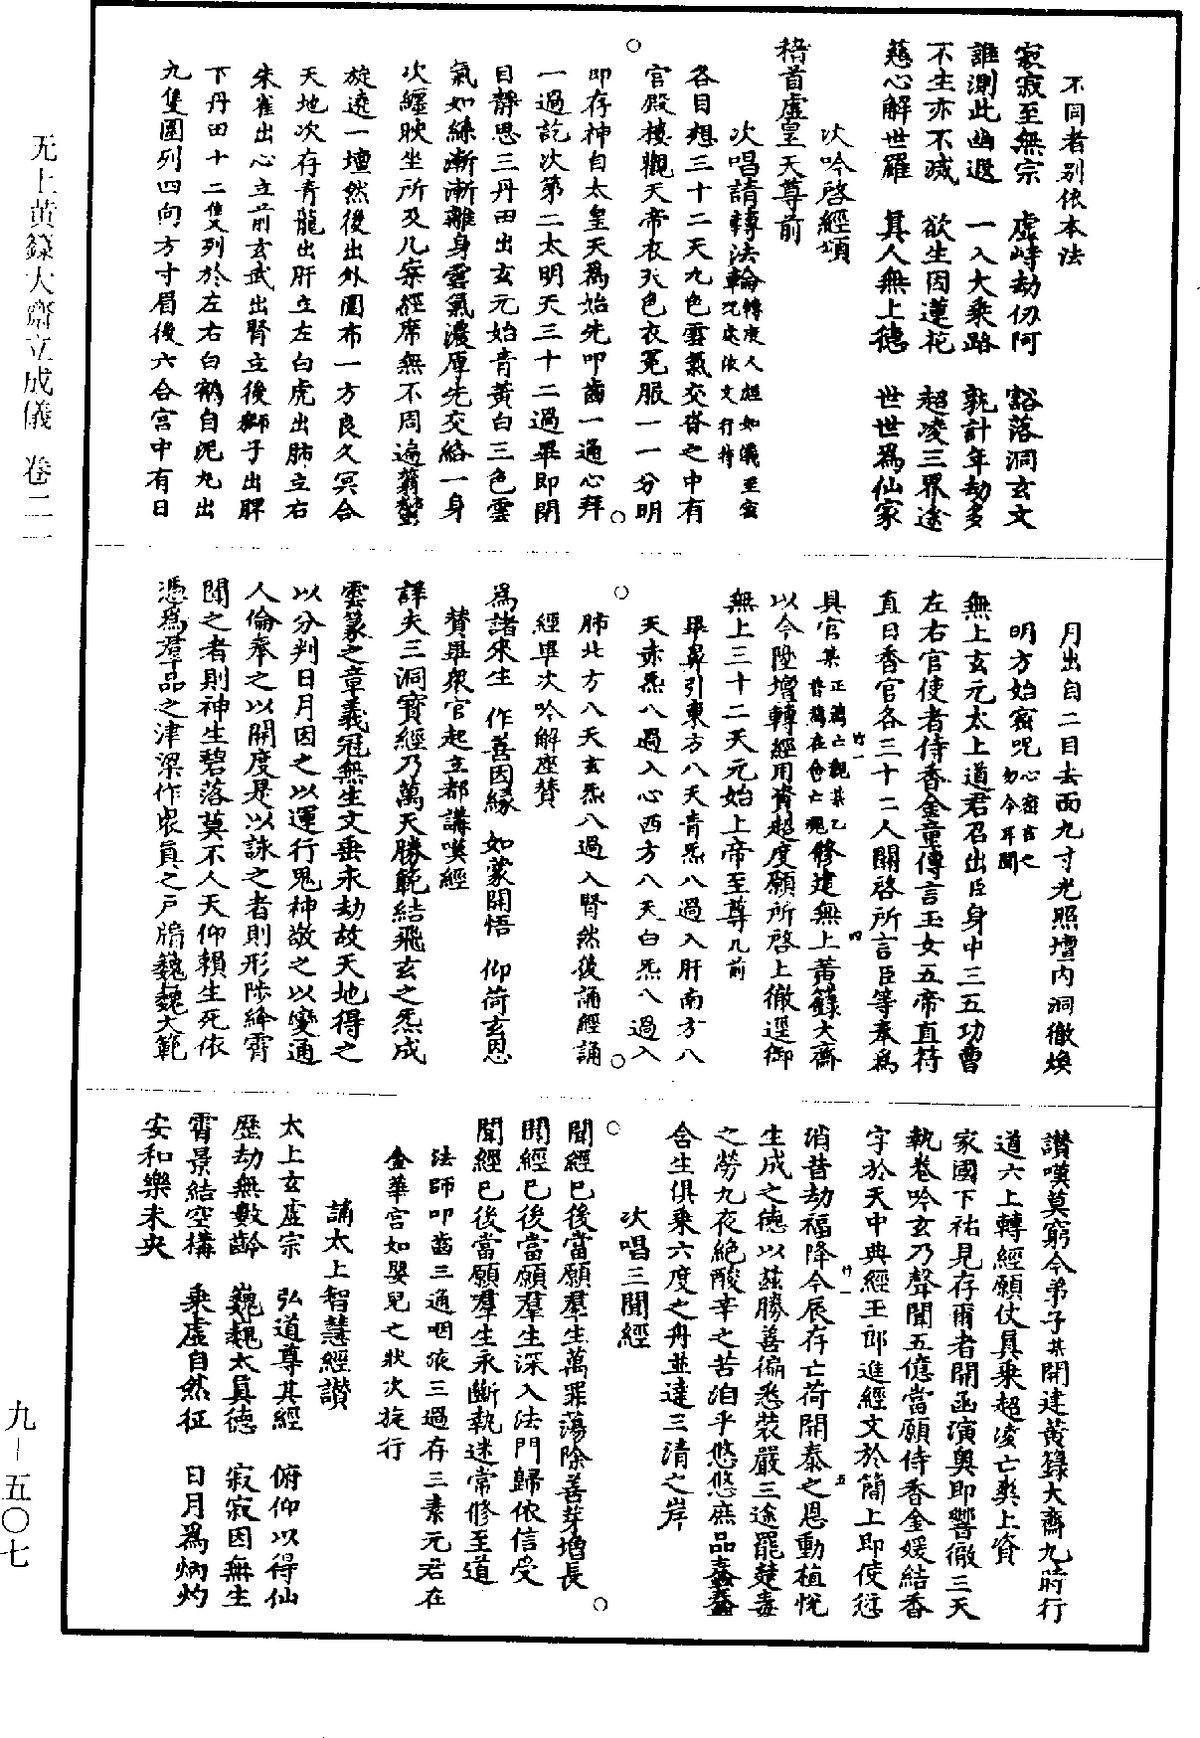 不同者别依本法
寂寂至無宗　虛峙劫仞阿　豁落洞玄文
誰測此幽遐　一入大乘路　孰計年劫多
不生亦不滅　欲生因蓮花　超凌三界途
慈心解世羅　真人無上德　世世爲仙家
次吟啓經頌
稽首虛皇天尊前
次唱請轉法輪轉度人經如儀至玄元處依文行持
各目想三十二天九色雲氣交沓之中有
官殿樓觀天帝衣天色衣冕服一一分明
即存神自太皇天爲始先叩齒一通心拜
一過訖次第二太明天三十二過畢即閉
目靜思三丹田出玄元始青黃白三色雲
氣如絲漸漸離身雲氣濃厚先交絡一身
次纏映坐所及几案經席無不周遍蓊鬱
旋遶一壇然後出外圍布一方良久冥合
天地次存青龍出肝立左白虎出肺立右
朱雀出心立前玄武出腎立後獅子出脾
下丹田十二隻列於左右白鶴自泥丸出
九隻圍列四向方寸眉後六合宮中有日
月出自二目去面九寸光照壇内洞徹煥
明方始密呪心密言之勿令耳聞
無上玄元太上道君召出臣身中三五功曹
左右官使者侍香金童傳言玉女五帝直符
直日香官各三十二人關啓所言臣等奉爲
具官某正薦亡親某乙普薦在會亡魂修建無上黃籙大齋
以今陞壇轉經用資超度願所啓上徹逕御
無上三十二天元始上帝至尊几前
畢鼻引東方八天青炁八過入肝南方八
天赤炁八過入心西方八天白炁八過入
肺北方八天玄炁八過入腎然後誦經誦
經畢次吟解座贊
爲諸來生　作善因緣　如蒙開悟　仰荷玄恩
贊畢衆官起立都講嘆經
詳夫三洞寶經乃萬天勝範結飛玄之炁成
雲篆之章義冠無生文垂未劫故天地得之
以分判日月因之以運行鬼神敬之以變通
人倫奉之以開度是以詠之者則形陟絳霄
聞之者則神生碧落莫不人天仰賴生死依
憑爲羣品之津梁作衆真之戶牖巍巍大範
讚嘆莫窮今弟子某開建黃籙大齋九時行
道六上轉經願仗真乘超凌亡爽上資
家國下祐見存爾者開函演奧即響徹三天
執卷吟玄乃聲聞五億當願侍香金媛結香
字於天中典經玉郎進經文於簡上即使愆
消昔劫福降今辰存亡荷開泰之恩動植悅
生成之德以茲勝善徧悉裝嚴三途罷楚毒
之勞九夜絶酸辛之苦洎乎悠悠庶品蠢蠢
含生俱乘六度之舟並達三清之岸
次唱三聞經
聞經已後當願羣生萬罪蕩除善芽增長
聞經已後當願羣生深入法門歸依信受
聞經已後當願羣生永斷執迷常修至道
法師叩齒三通咽液三過存三素元君在
金華宮如嬰兒之狀次旋行
誦太上智慧經讚
太上玄虛宗　弘道尊其經　俯仰以得仙
歷劫無數齡　巍巍太真德　寂寂因無生
霄景結空構　乘虛自然征　日月爲炳灼
安和樂未央
无上黄籙大齋立成儀　卷二一
九—五〇七